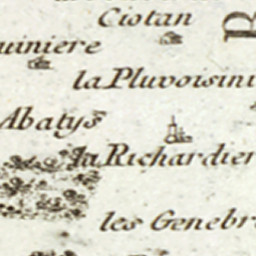 Ciotan
uiniere
la Pluvoisini
Abatys
la Richardier
les Genebr